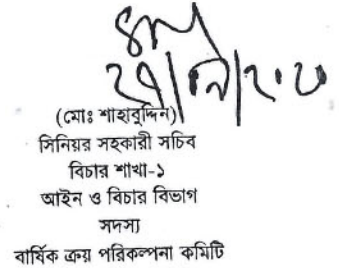 (মোঃ শাহাবুদ্দিন)
সিনিয়র সহকারী সচিব
বিচার শাখা-১
আইন ও বিচার বিভাগ
সদস্য
বার্ষিক ক্রয় পরিকল্পনা কমিটি